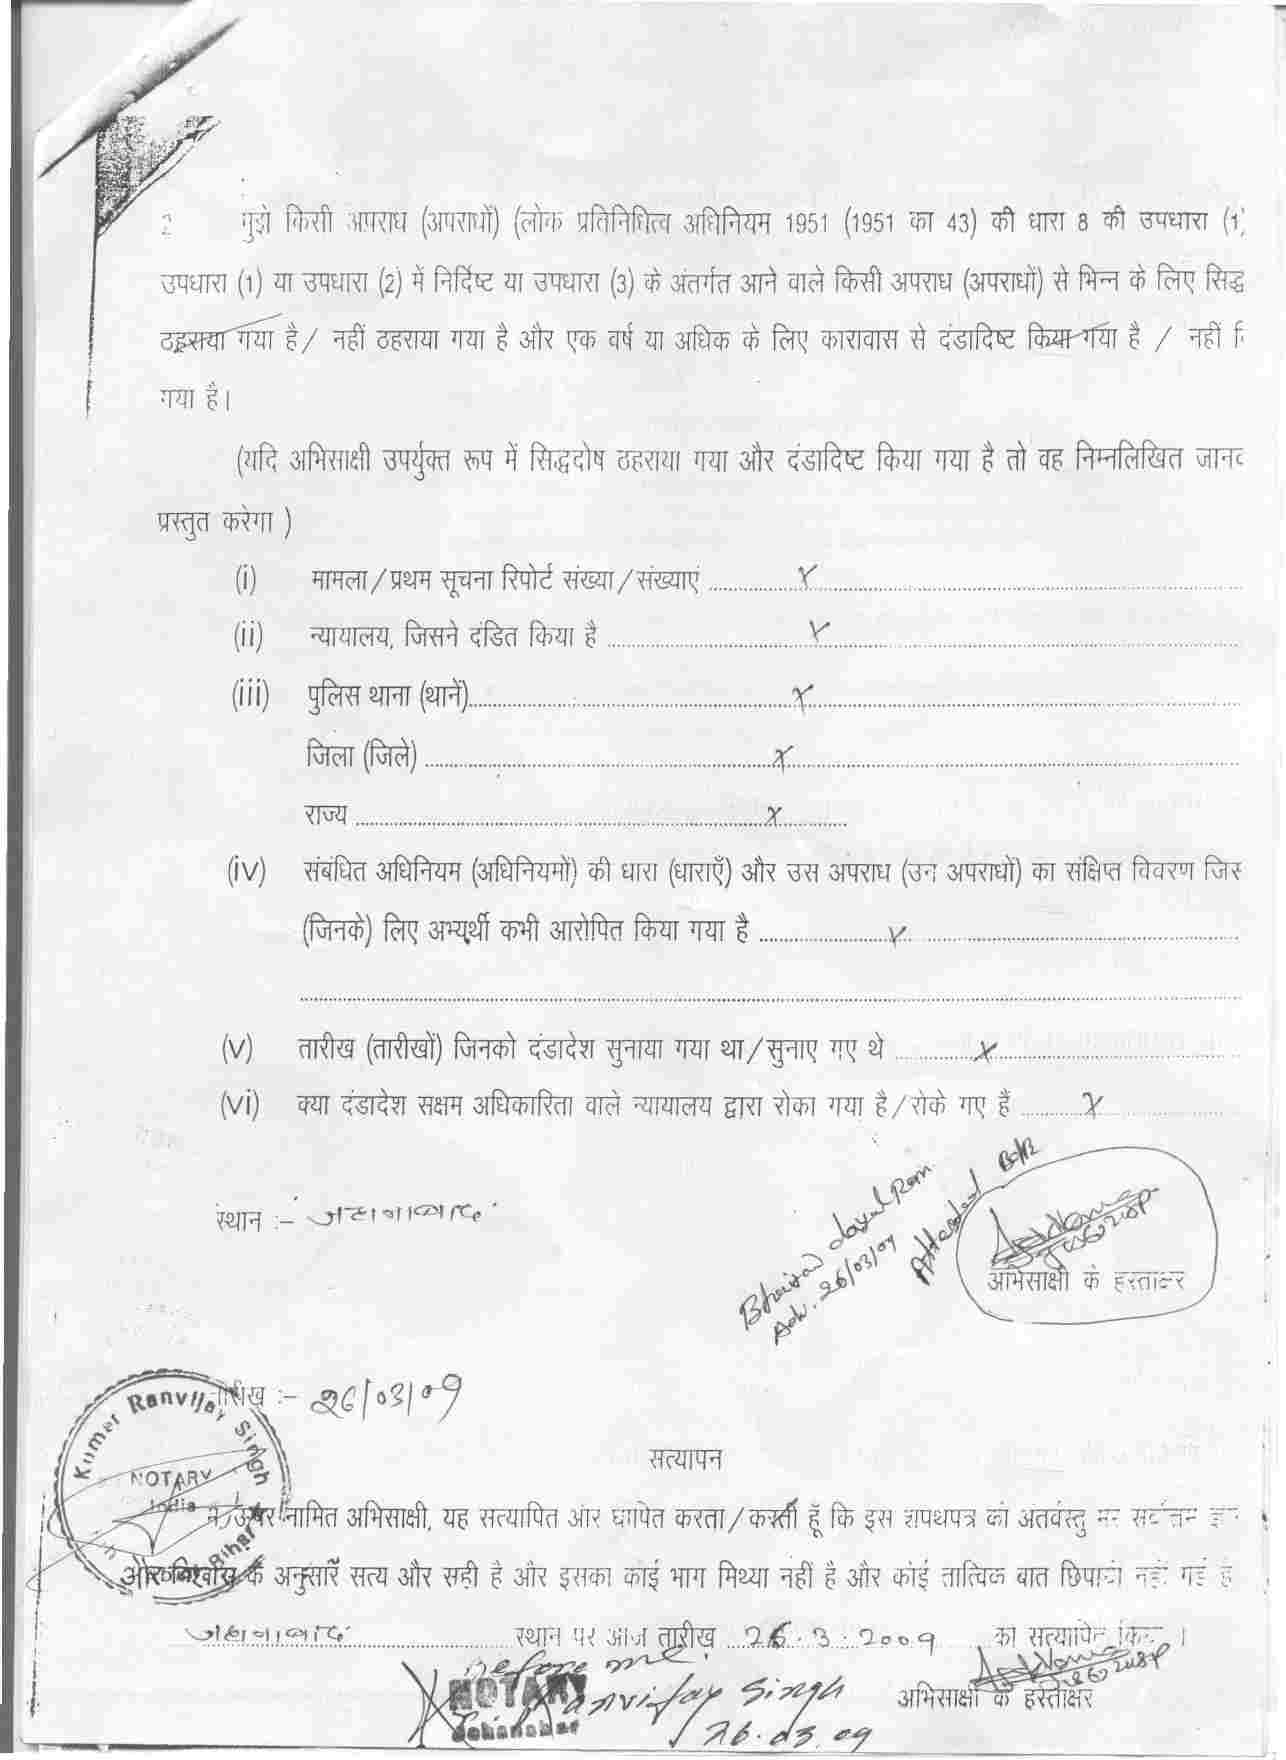 2 मुझे किसी अपराध (अपराधों) (लोक प्रतिनिधित्व अधिनियम 1951 (1951 का 43) की धारा 8 की उपधारा (1)
उपधारा (1) या उपधारा (2) में निर्दिष्ट या उपधारा (3) के अंतर्गत आने वाले किसी अपराध (अपराधों) से भिन्न के लिए सिद्ध
ठहराया गया है / नहीं ठहराया गया है और एक वर्ष या अधिक के लिए कारावास से दंडादिष्ट किया गया है / नहीं
गया है।
(यदि अभिसाक्षी उपर्युक्त रूप में सिद्धदोष ठहराया गया और दंडादिष्ट किया गया है तो वह निम्नलिखित
प्रस्तुत करेगा )
(i) मामला/प्रथम सूचना रिपोर्ट संख्या/संख्याएं ........ x ........
(ii) न्यायालय, जिसने दंडित किया है ........ x ........
(iii) पुलिस थाना (थानें) ........ x ........
जिला (जिले) ........ x ........
राज्य ........ x ........
(iv) संबंधित अधिनियम (अधिनियमों) की धारा (धाराएँ) और उस अपराध (उन अपराधों) का संक्षिप्त विवरण
(जिनके) लिए अभ्यर्थी कभी आरोपित किया गया है ........ x ........
(v) तारीख (तारीखों) जिनको दंडादेश सुनाया गया था/सुनाए गए थे ........ x ........
(vi) क्या दंडादेश सक्षम अधिकारिता वाले न्यायालय द्वारा रोका गया है/रोके गए हैं ........ x ........
स्थान :- जहानाबाद
Dayal Ram
Adv. 26/03/09
Attested
अभिसाक्षी के हस्ताक्षर
तारीख :- 26/03/09
Kumar Ranvijay Singh
NOTARY
India
Bihar
सत्यापन
नामित अभिसाक्षी, यह सत्यापित और घोषित करता/करती हूँ कि इस शपथपत्र की अंतर्वस्तु मेरे सर्वोत्तम
और विश्वास के अनुसार सत्य और सही है और इसका कोई भाग मिथ्या नहीं है और कोई तात्विक बात छिपायी नहीं गई है
जहानाबाद स्थान पर आज तारीख 26.3.2009 को सत्यापित किया ।
Before me
NOTARY
Jehanabad
Ranvijay Singh
26.03.09
अभिसाक्षी के हस्ताक्षर